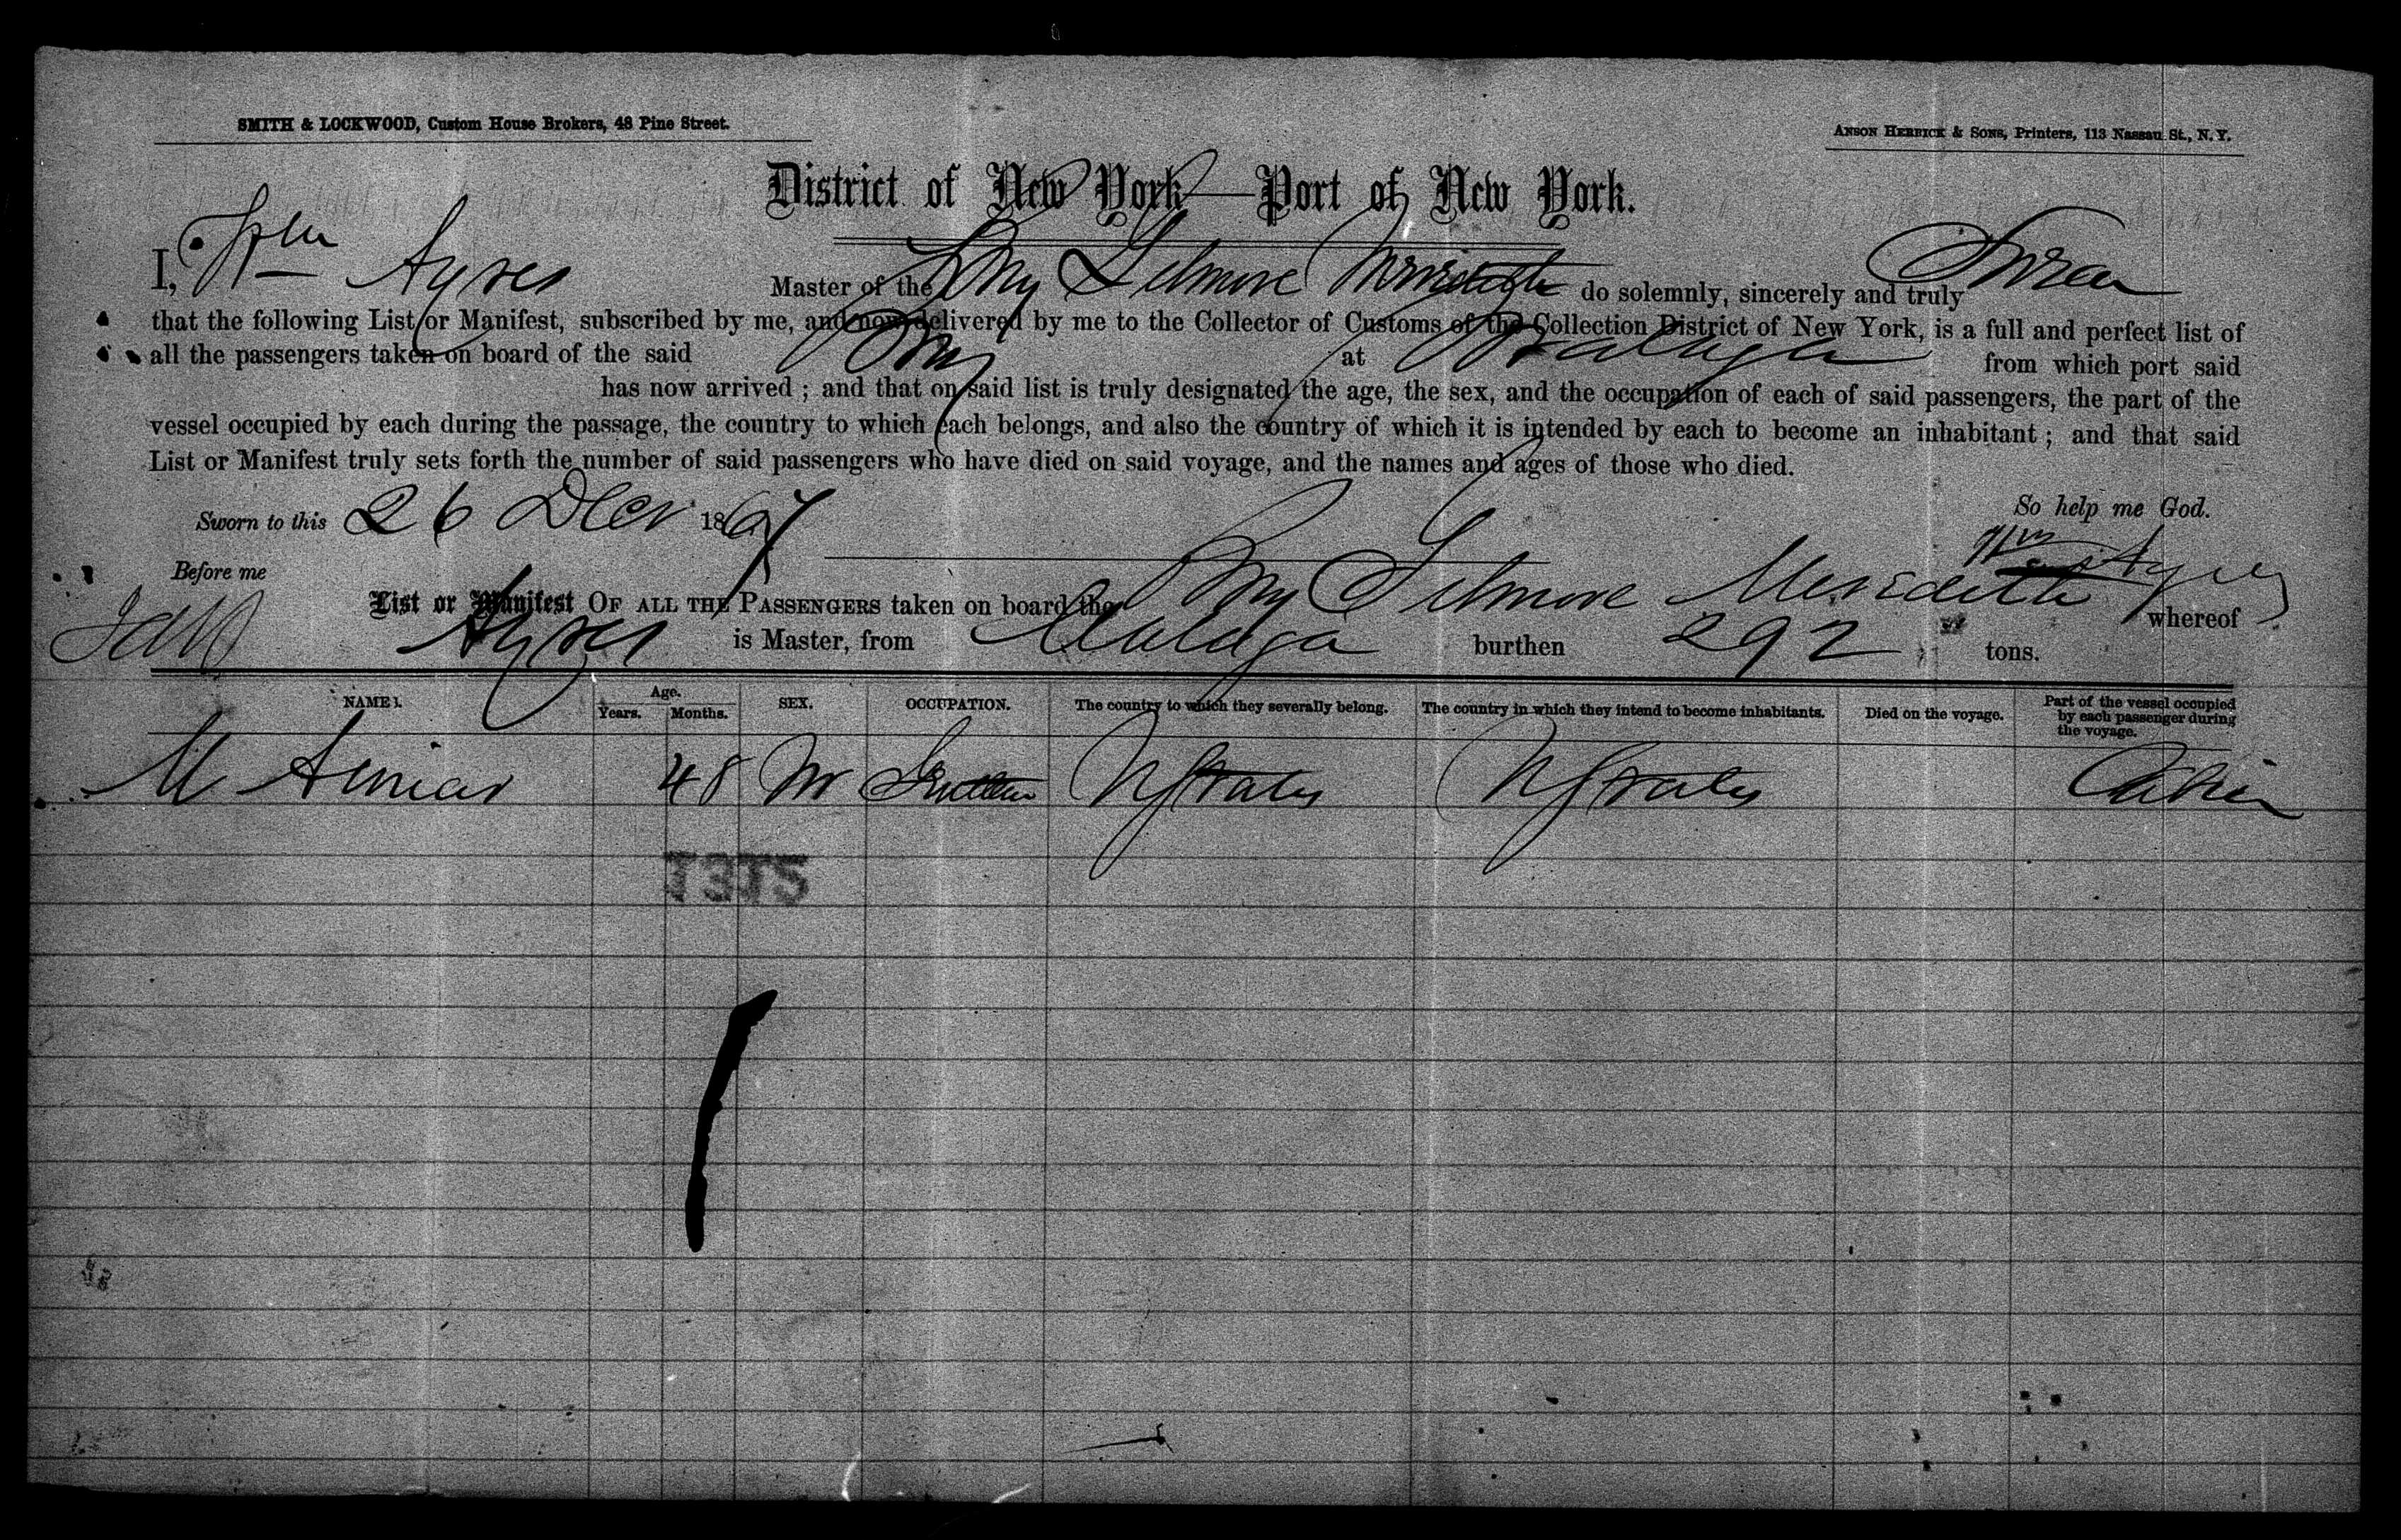 SMITH & LOCKWOOD, Custom House Brokers, 48 Pine Street.
ANSON HERRICK & SONS, Printers, 113 Nassau St., N. Y.
District of New York—Port of New York.
I, Wm Ayres Master of the Brig Gilmore Meredith do solemnly, sincerely and truly Swear
that the following List or Manifest, subscribed by me, and now delivered by me to the Collector of Customs of the Collection District of New York, is a full and perfect list of
all the passengers taken on board of the said Brig at Malaga from which port said
has now arrived ; and that on said list is truly designated the age, the sex, and the occupation of each of said passengers, the part of the
vessel occupied by each during the passage, the country to which each belongs, and also the country of which it is intended by each to become an inhabitant ; and that said
List or Manifest truly sets forth the number of said passengers who have died on said voyage, and the names and ages of those who died.
So help me God.
Sworn to this 26 Decr 1867
Wm Ayres
Before me
List or Manifest OF ALL THE PASSENGERS taken on board the Brig Gilmore Meredith whereof
Ayres is Master, from Malaga burthen 292 tons.
NAMES. Age. Years. Months. SEX. OCCUPATION. The country to which they severally belong. The country in which they intend to become inhabitants. Died on the voyage. Part of the vessel occupied by each passenger during the voyage.
M 48 M U States U States Cabin
1312